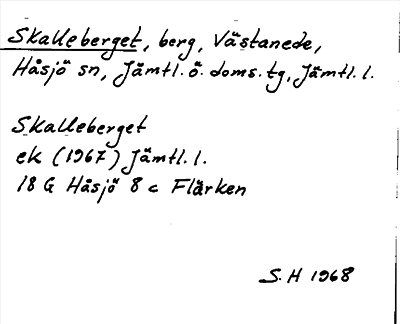 Skalleberget, berg, Västanede,
Håsjö sn, Jämtl. ö. doms. tg, Jämtl. l.
Skalleberget
ek (1967) Jämtl. l.
18 G Håsjö 8 c Flärken
S. H 1968